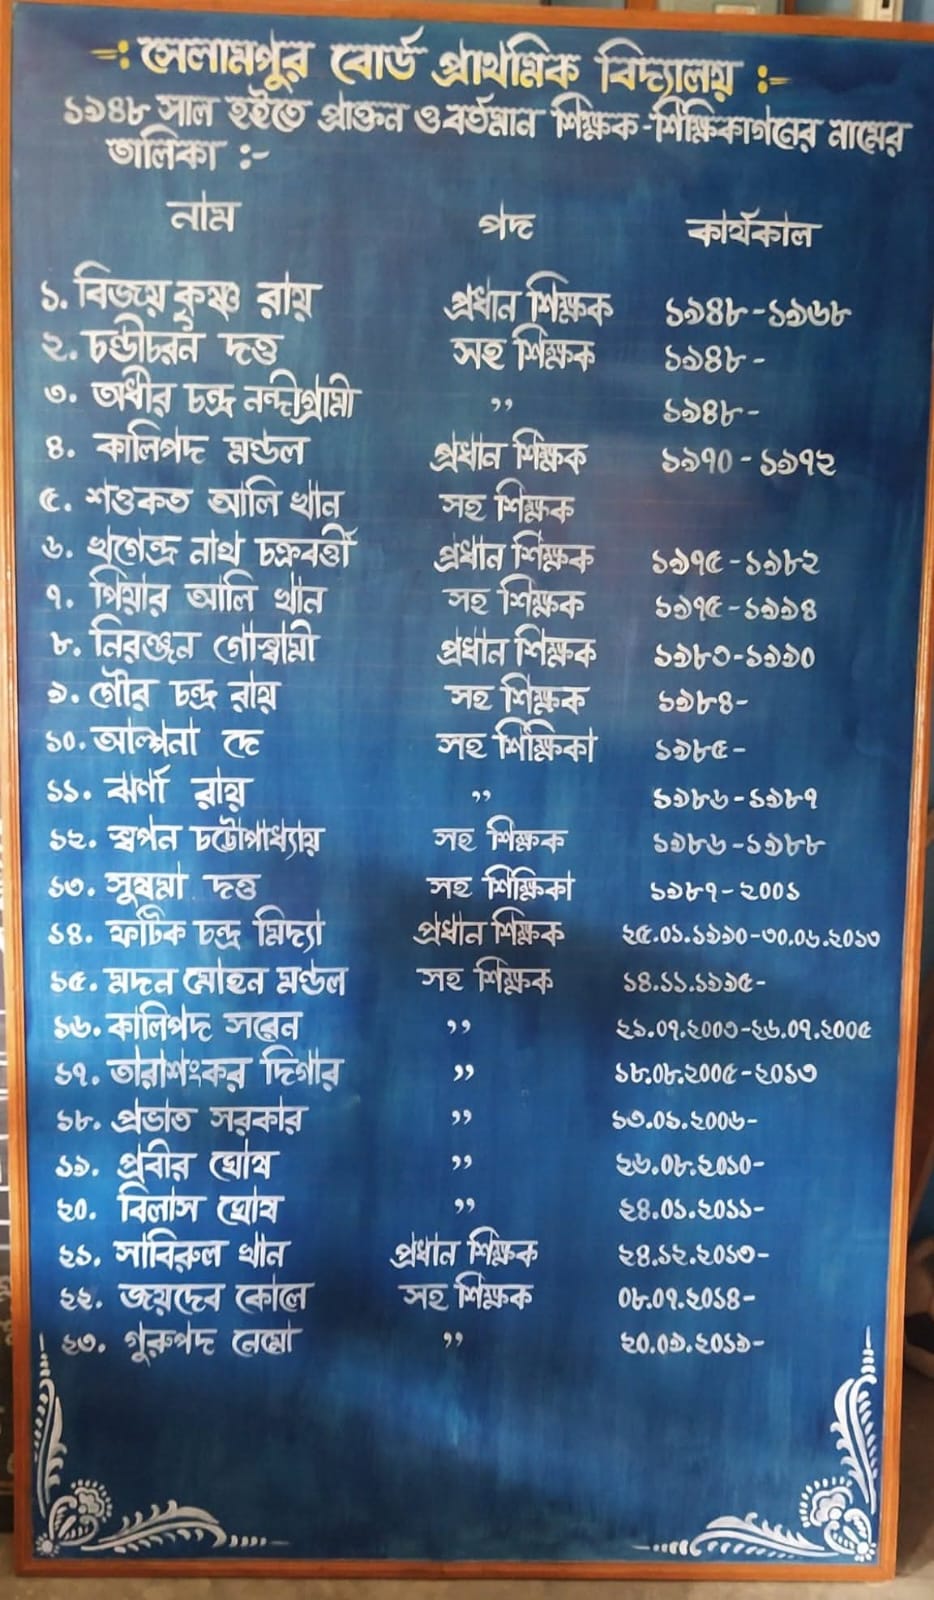 -: সেলামপুর বোর্ড প্রাথমিক বিদ্যালয় :-
১৯৪৮ সাল হইতে প্রাক্তন ও বর্তমান শিক্ষক-শিক্ষিকাগনের নামের
তালিকা :-
নাম পদ কার্যকাল
১. বিজয় কৃষ্ণ রায় প্রধান শিক্ষক ১৯৪৮-১৯৬৮
২. চন্ডীচরন দত্ত সহ শিক্ষক ১৯৪৮-
৩. অধীর চন্দ্র নন্দীগ্রামী ,, ১৯৪৮-
৪. কালিপদ মণ্ডল প্রধান শিক্ষক ১৯৭০-১৯৭২
৫. শওকত আলি খান সহ শিক্ষক
৬. খগেন্দ্র নাথ চক্রবর্ত্তী প্রধান শিক্ষক ১৯৭৫-১৯৮২
৭. পিয়ার আলি খান সহ শিক্ষক ১৯৭৫-১৯৯৪
৮. নিরঞ্জন গোস্বামী প্রধান শিক্ষক ১৯৮৩-১৯৯০
৯. গৌর চন্দ্র রায় সহ শিক্ষক ১৯৮৪-
১০. আল্পনা দে সহ শিক্ষিকা ১৯৮৫-
১১. ঝর্ণা রায় ,, ১৯৮৬-১৯৮৭
১২. স্বপন চট্টোপাধ্যায় সহ শিক্ষক ১৯৮৬-১৯৮৮
১৩. সুষমা দত্ত সহ শিক্ষিকা ১৯৮৭-২০০১
১৪. ফটিক চন্দ্র মিদ্যা প্রধান শিক্ষক ২৫.০১.১৯৯০-৩০.০৬.২০১৩
১৫. মদন মোহন মণ্ডল সহ শিক্ষক ১৪.১১.১৯৯৫-
১৬. কালিপদ সরেন ,, ২১.০৭.২০০৩-২৬.০৭.২০০৫
১৭. তারাশংকর দিগার ,, ১৮.০৮.২০০৫-২০১৩
১৮. প্রভাত সরকার ,, ১৩.০১.২০০৬-
১৯. প্রবীর ঘোষ ,, ২৬.০৮.২০১০-
২০. বিলাস ঘোষ ,, ২৪.০১.২০১১-
২১. সাবিরুল খান প্রধান শিক্ষক ২৪.১২.২০১৩-
২২. জয়দেব কোলে সহ শিক্ষক ০৮.০৭.২০১৪-
২৩. গুরুপদ নেমো ,, ২০.০৯.২০১৯-